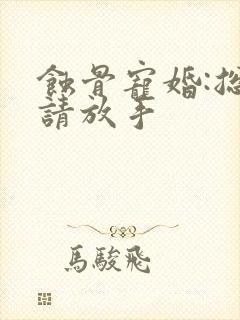 蝕骨寵婚:總
請放手
馬駿飛